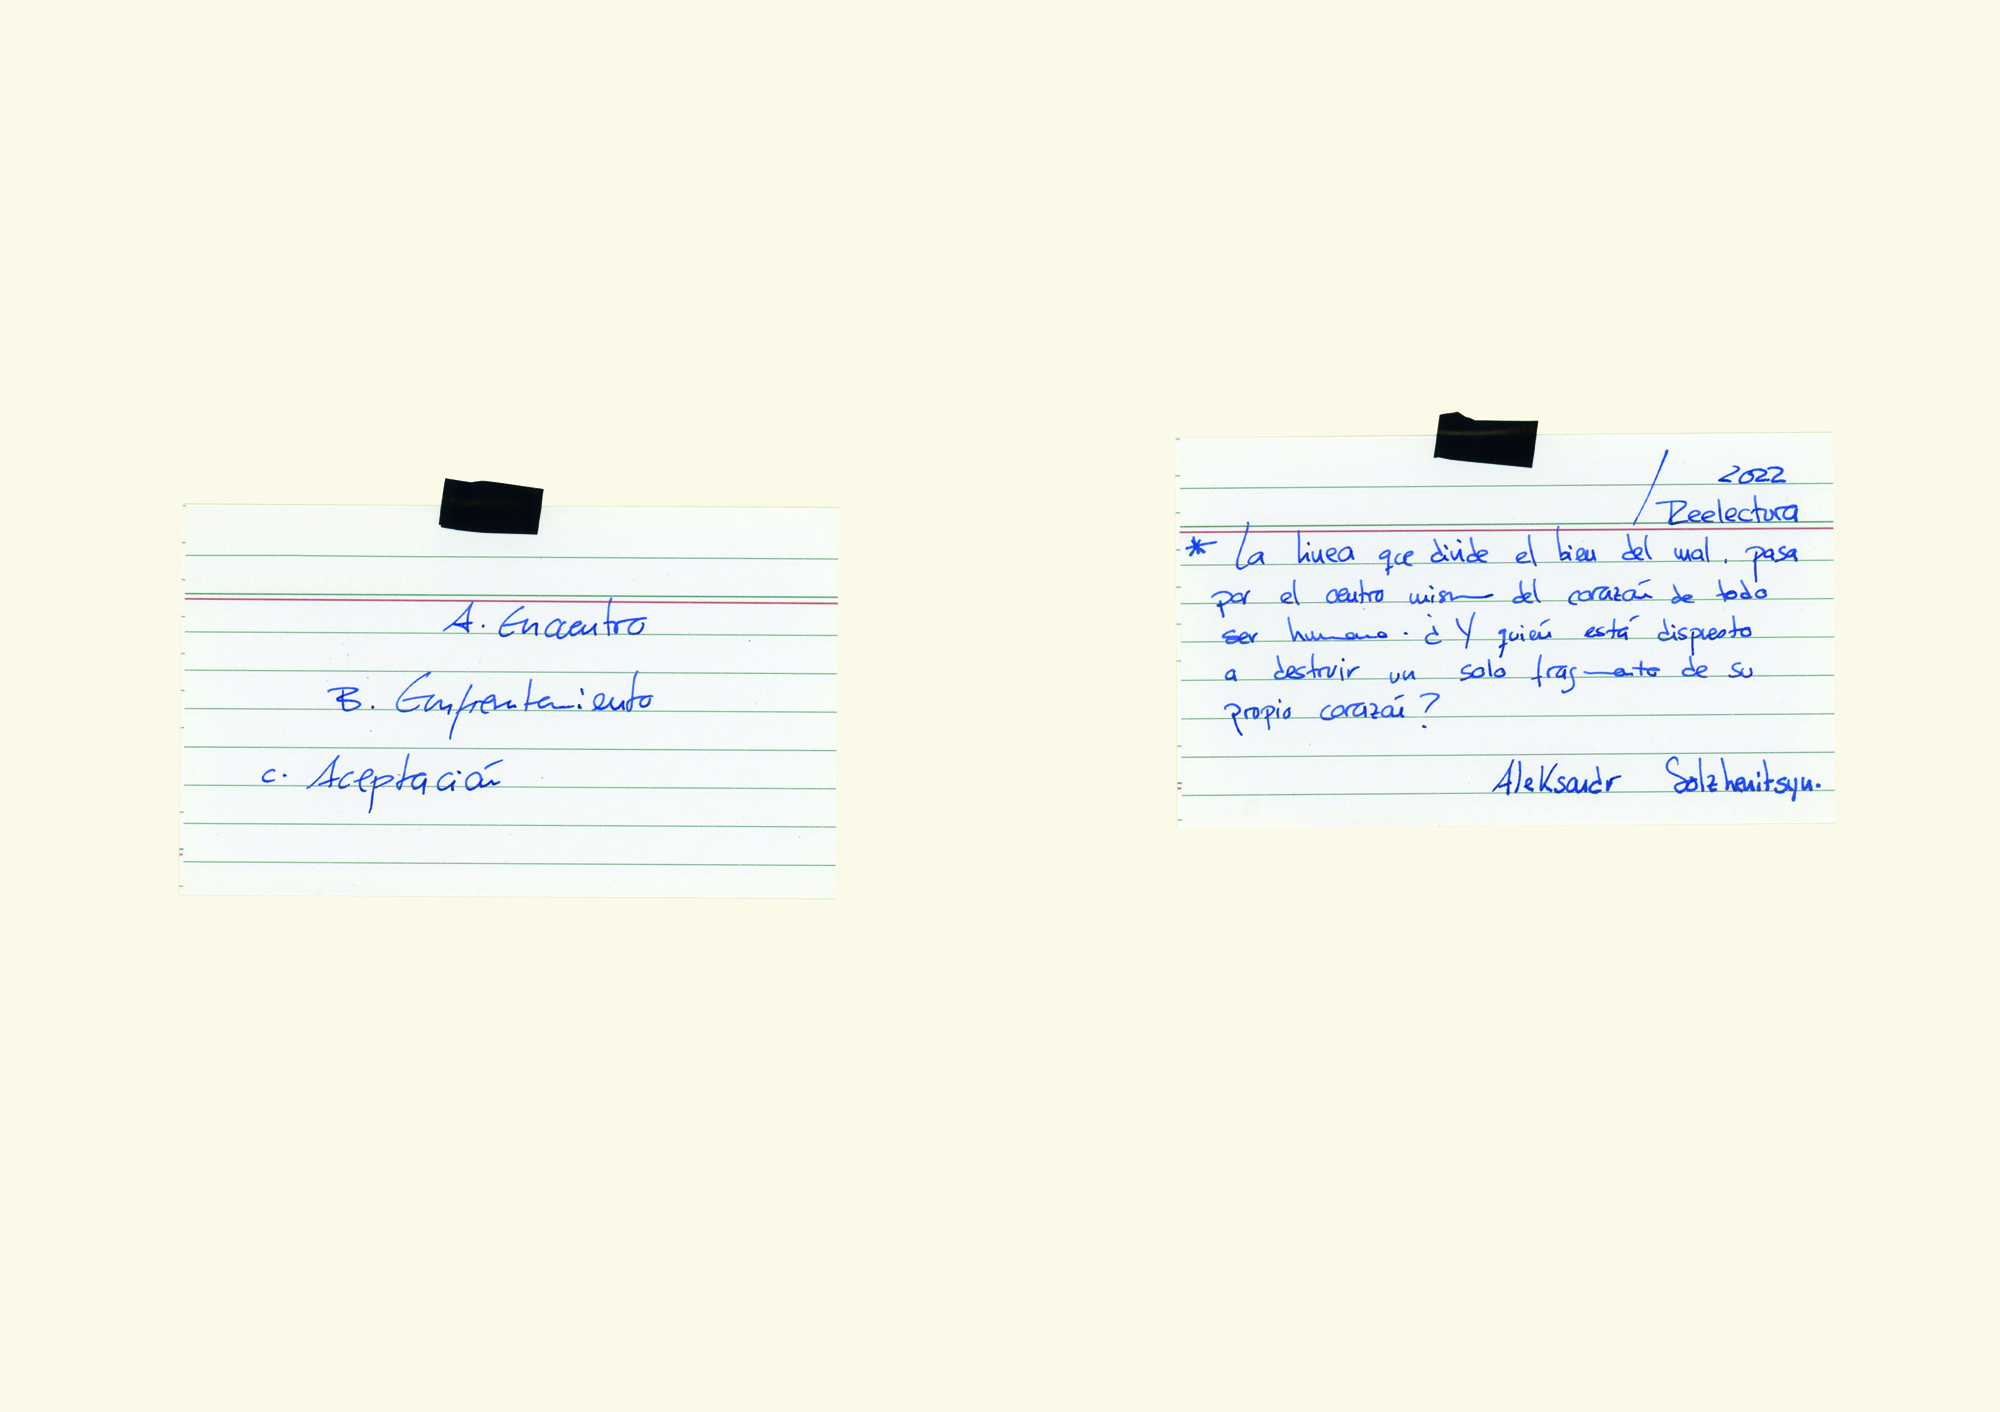 A. Encuentro
B. Enfrentamiento
C. Aceptación
2022
/ Reelectura
* La línea que divide el bien del mal, pasa
por el centro mismo del corazón de todo
ser humano. ¿Y quién está dispuesto
a destruir un solo fragmento de su
propio corazón?
Aleksandr Solzhenitsyn.